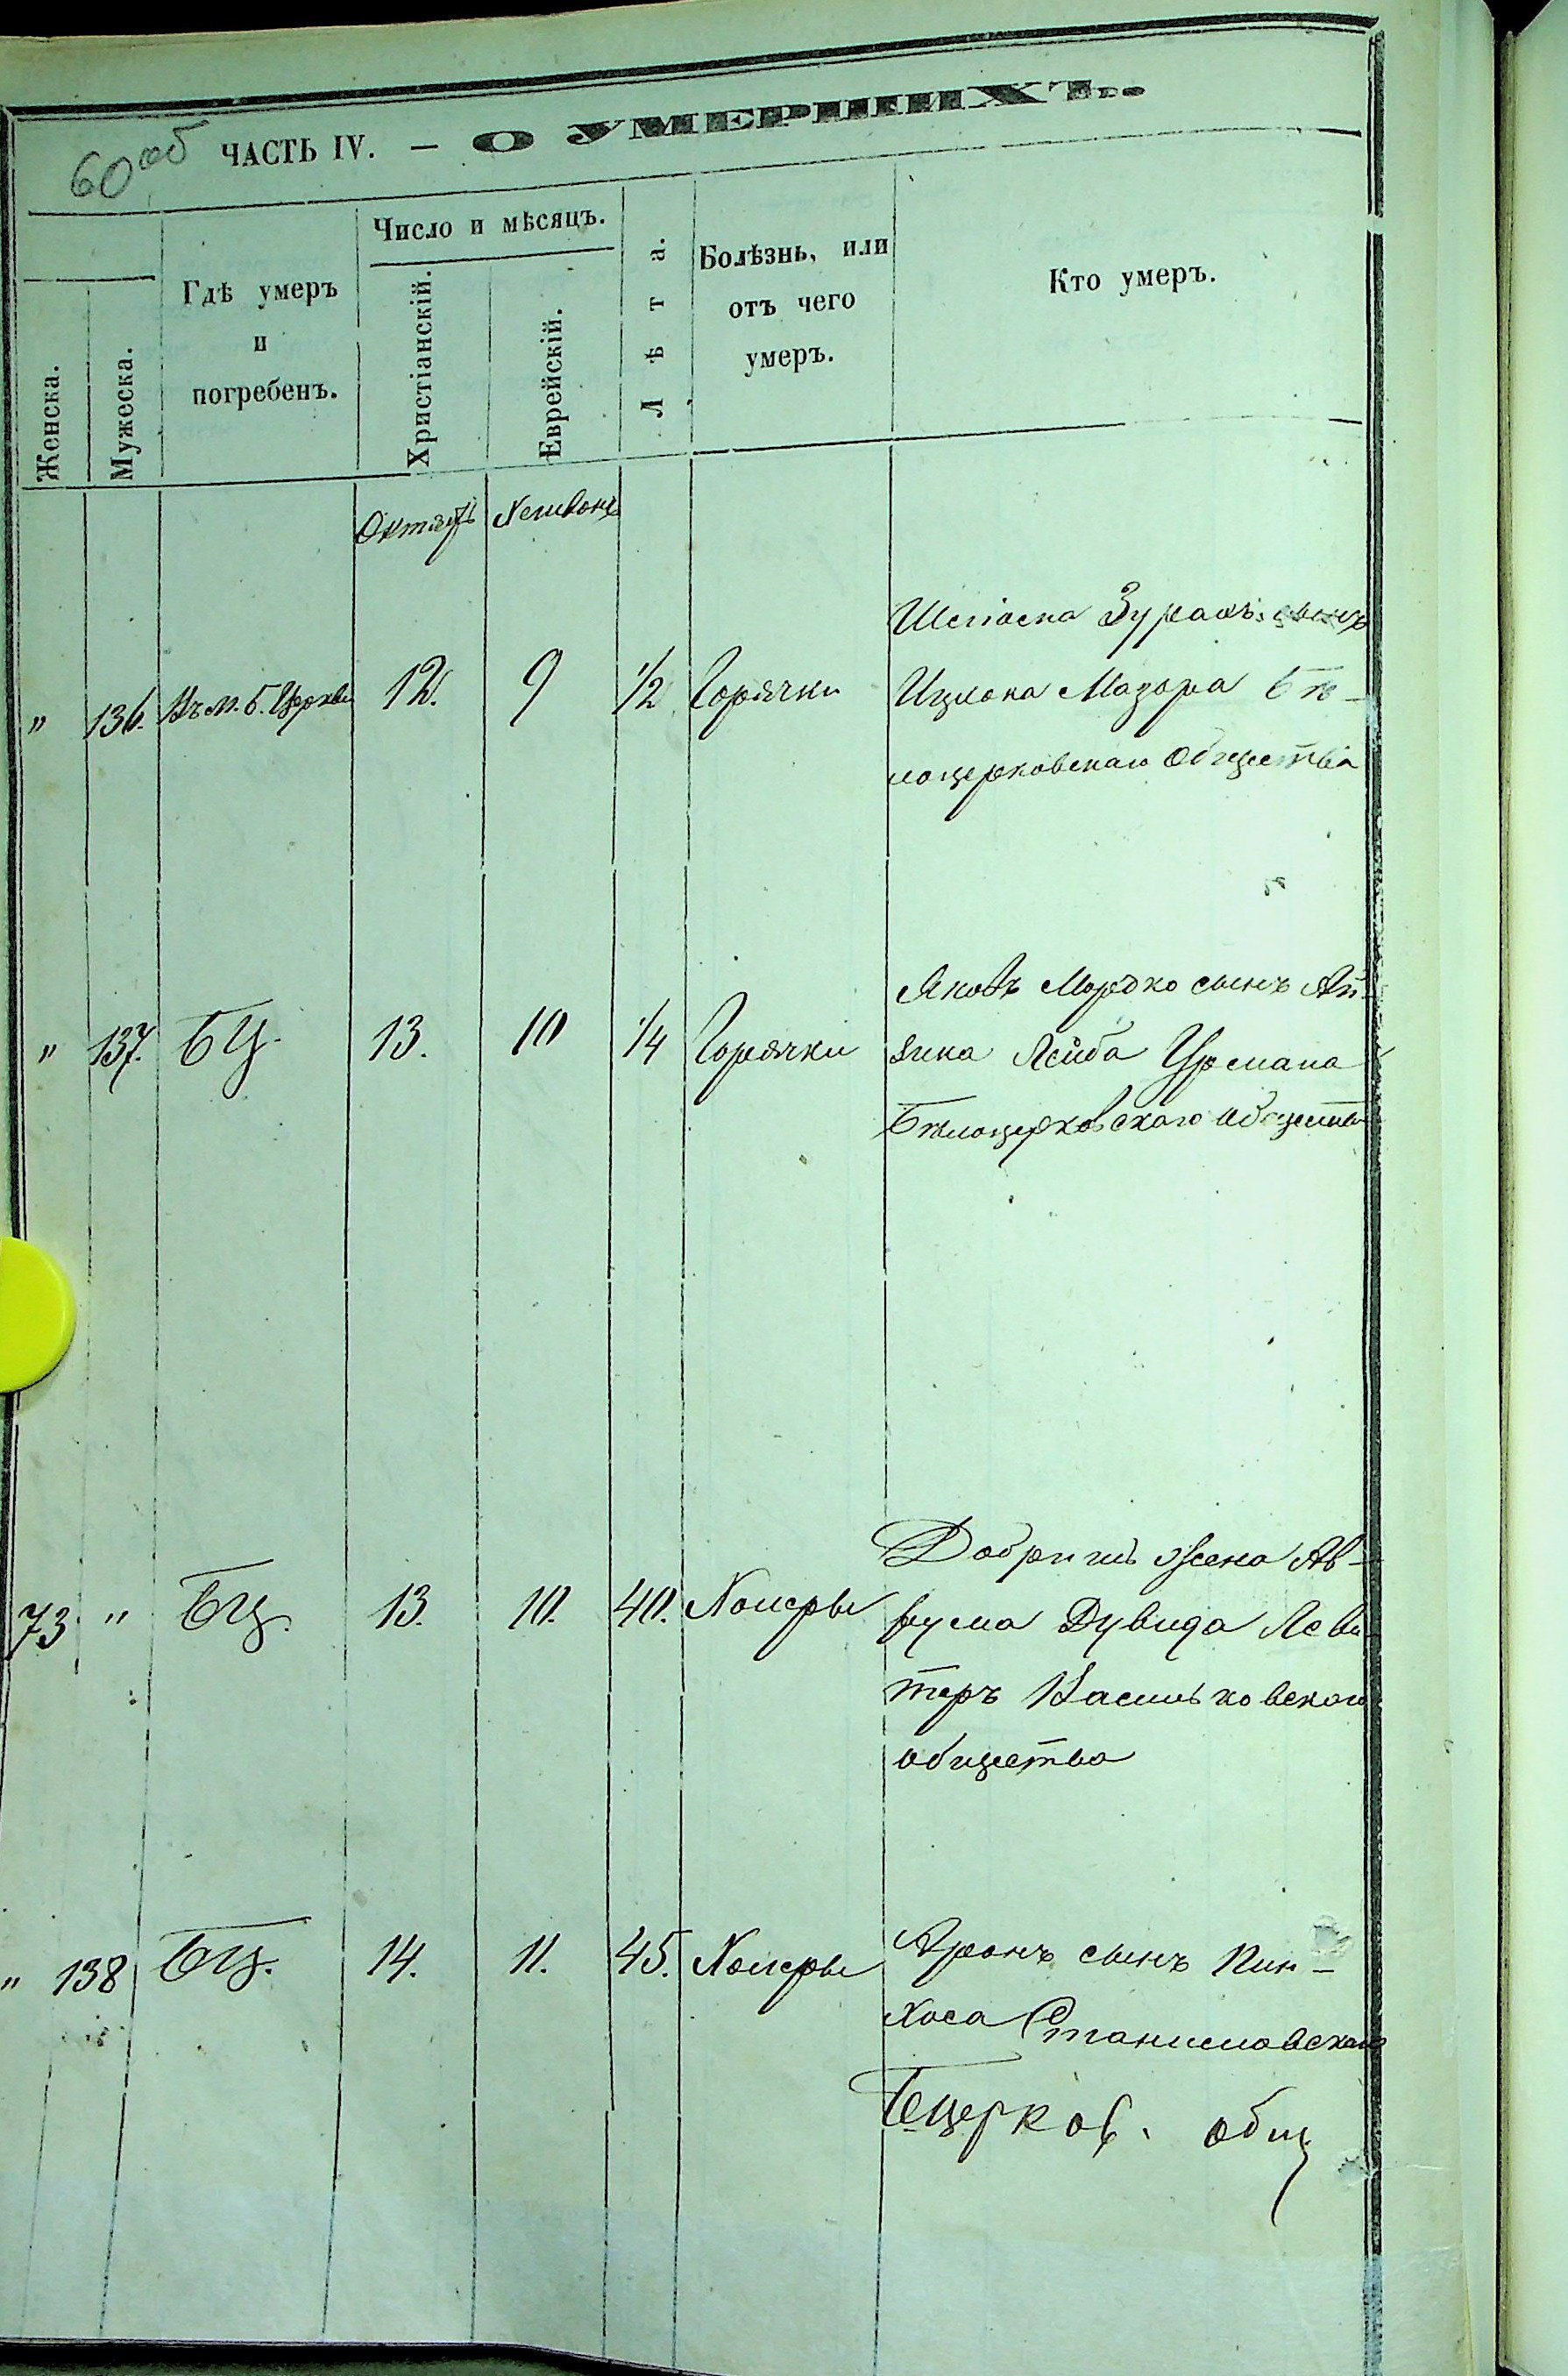 60 об
ЧАСТЬ IV. — О УМЕРШИХЪ.
Женска.
Мужеска.
Гдѣ умеръ
и
погребенъ.
Число и мѣсяцъ.
Христіанскій.
Еврейскій.
Лѣта.
Болѣзнь, или
отъ чего
умеръ.
Кто умеръ.
Октяб Хешвонъ
сынъ
" 136. Въ м. Б. Церкви 12. 9 1/2 Горячки Ицкока Мазора Бѣ-
лоцерковскаго Общества
Яковъ Мордко сынъ Ай-
" 137. БЦ. 13. 10 1/4 Горячки зика Лейба Урмана
Бѣлоцерковскаго общества
Добришъ жена Ав-
73 " БЦ. 13. 10. 40. Холеры рума Дувида Леви-
теръ Васильковскаго
общества
" 138 БЦ. 14. 11. 45. Холеры Аронъ сынъ Пин-
хоса Станиславскаго
Бцерков. общ